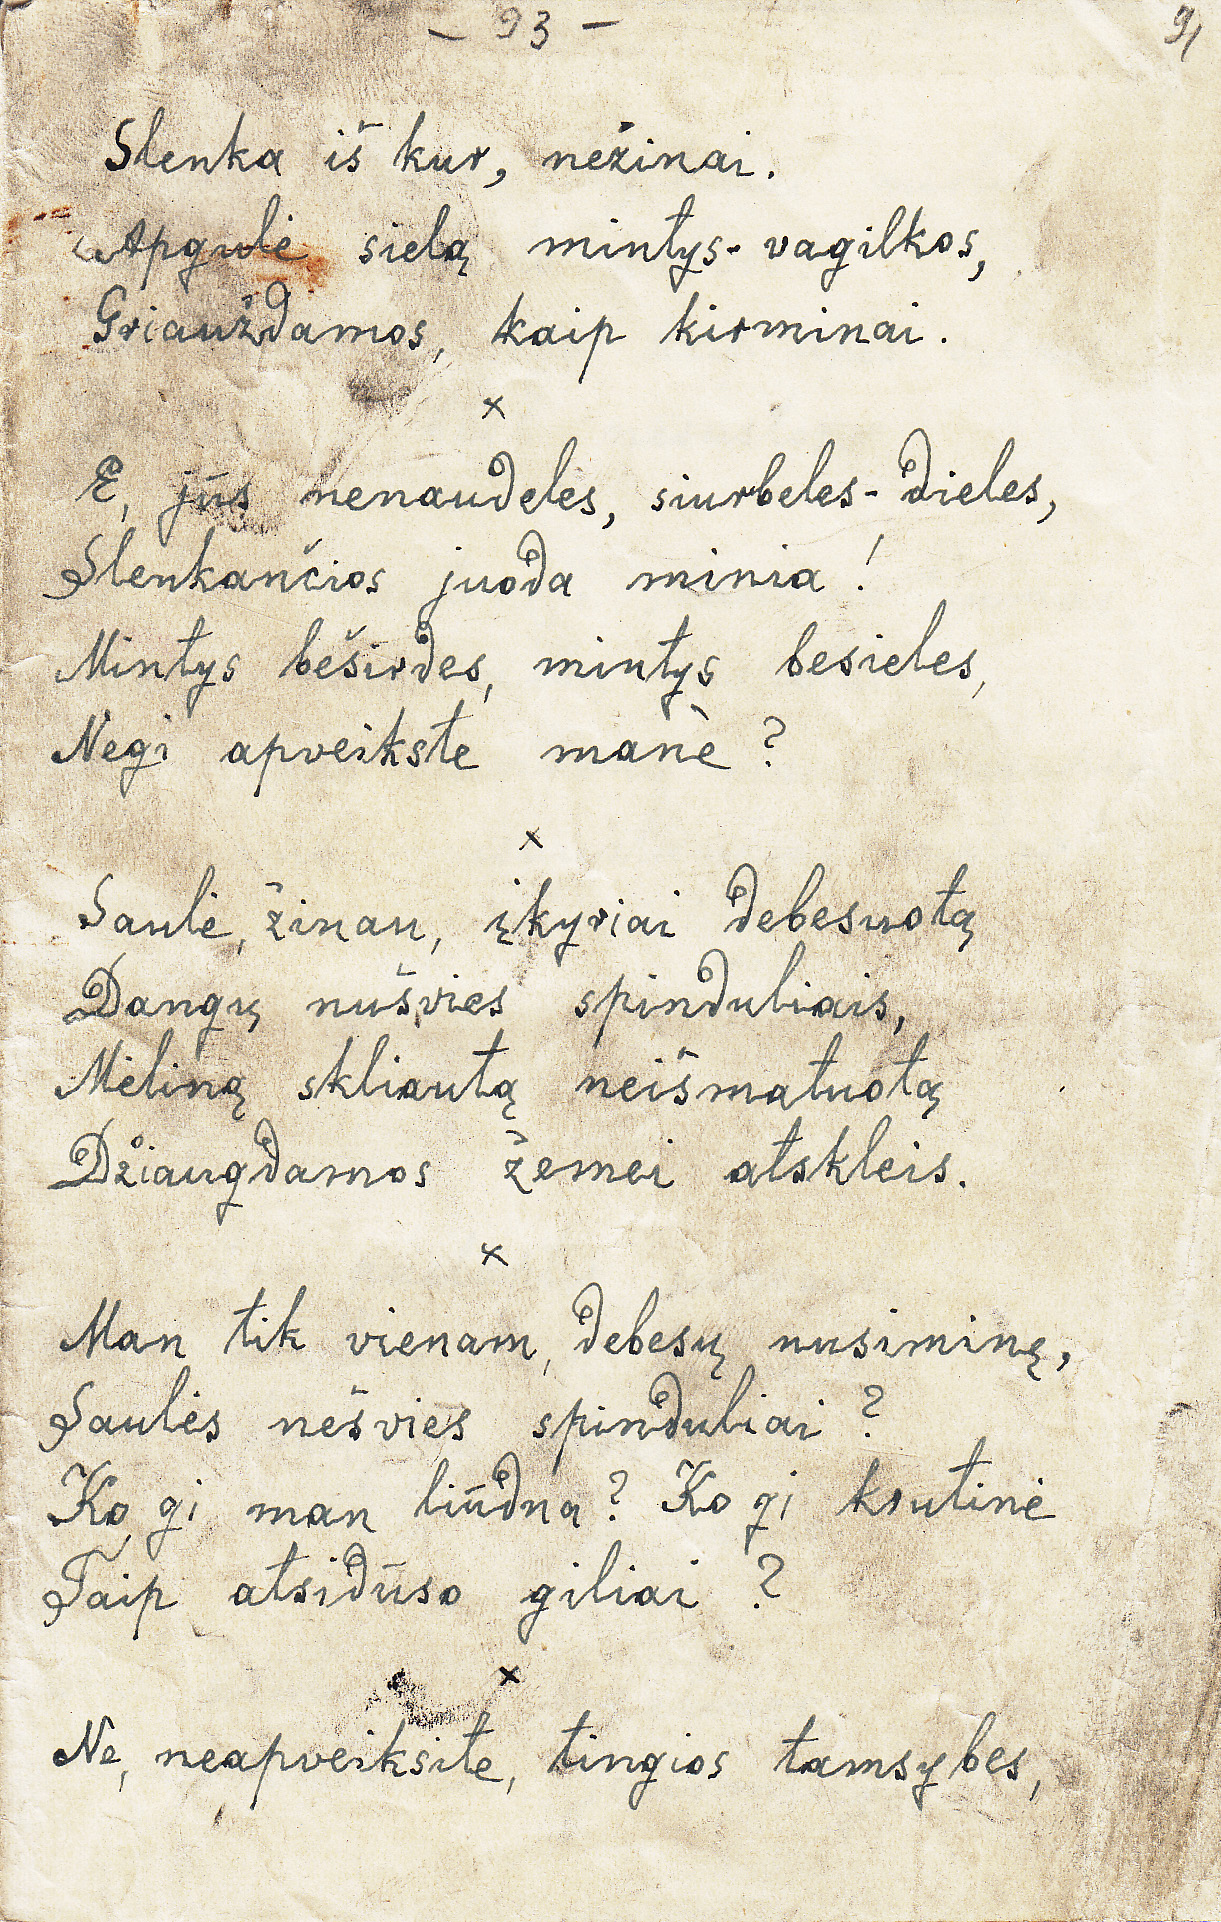 - 93 -
91
Slenka iš kur, nežinai.
Apgulė sielą mintys-vagilkos,
Griauždamos, kaip kirminai.
x
E, jūs nenaudeles, siurbeles-dieles,
Slenkančios juoda minia!
Mintys beširdes, mintys besieles,
Negi apveikste manė?
x
Saulė, žinau, įkyriai debesuotą
Dangų nušvies spinduliais,
Mėliną skliautą neišmatuotą
Džiaugdamos žemei atskleis.
x
Man tik vienam, debesų nusiminę,
Saulės nešvies spinduliai?
Ko gi man liūdna? Ko gi krutinė
Taip atsidūso giliai?
x
Ne, neapveiksite, tingios tamsybes,